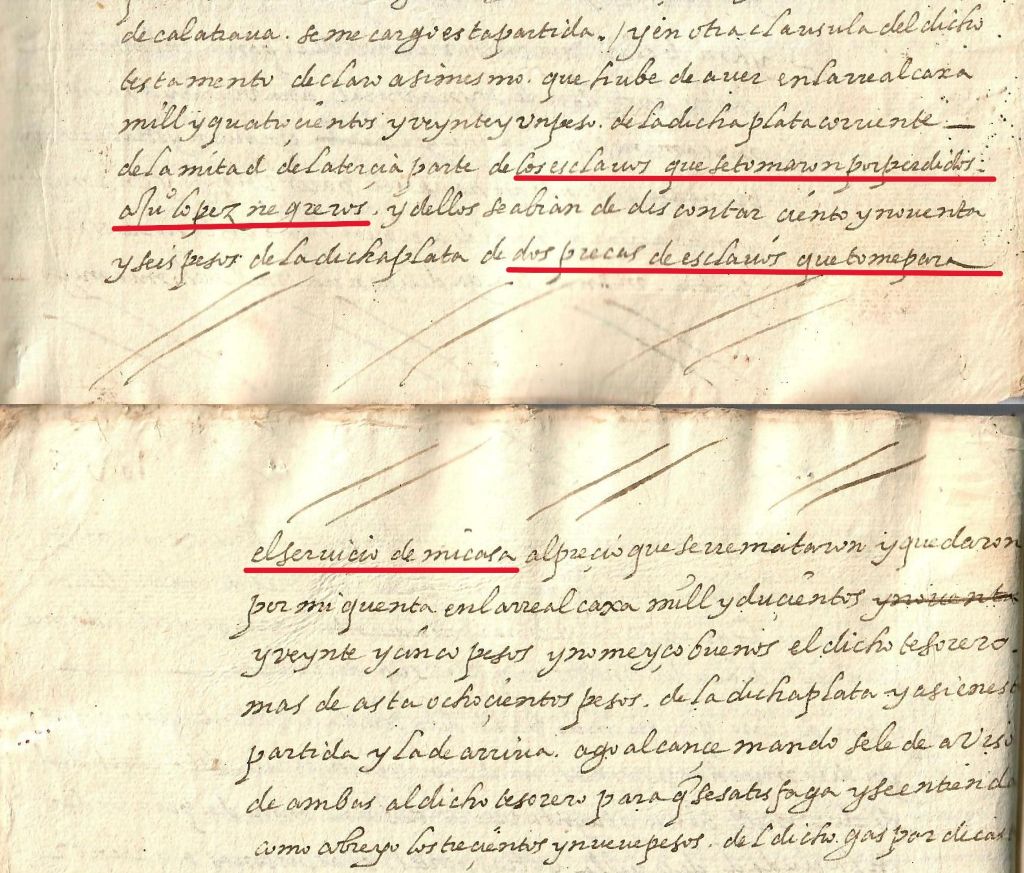 de calatrava. se me cargo esta partida. / y en otra clausula del dicho
testamento declaro asimesmo. que hube de aver en la rreal caxa
mill y quatrocientos y veynte y un peso. de la dicha plata corriente
de la mitad de la tercia parte de los esclavos que se tomaron por perdidos.
a Juº lopez negreros. y dellos se abian de discontar ciento y noventa
y seis pesos de la dicha plata de dos pieças de esclavos que tome para
el servicio de mi casa al precio que se rremataron y quedaron
por mi quenta en la rreal caxa mill y ducientos y noventa
y veynte y cinco pesos y no me yço buenos el dicho tesorero.
mas de asta ochocientos pesos. de la dicha plata y asi en est
partida y la de arriva. ago alcançe mando se le de aviso
de ambas al dicho tesorero para q̃ se satisfaga y se entienda
como abreyo los trecientos y nueve pesos. del dicho gaspar dicas